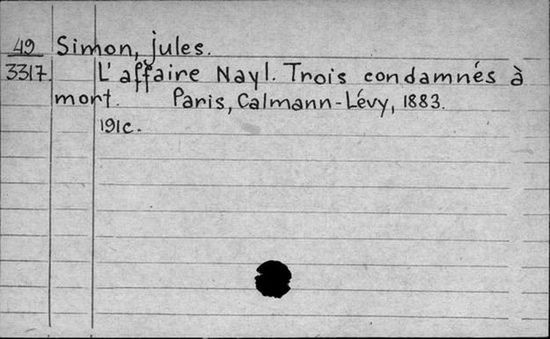 49 Simon, jules.
3317 L'affaire Nayl. Trois condamnés à
mort. Paris, Calmann-Lévy, 1883.
191c.